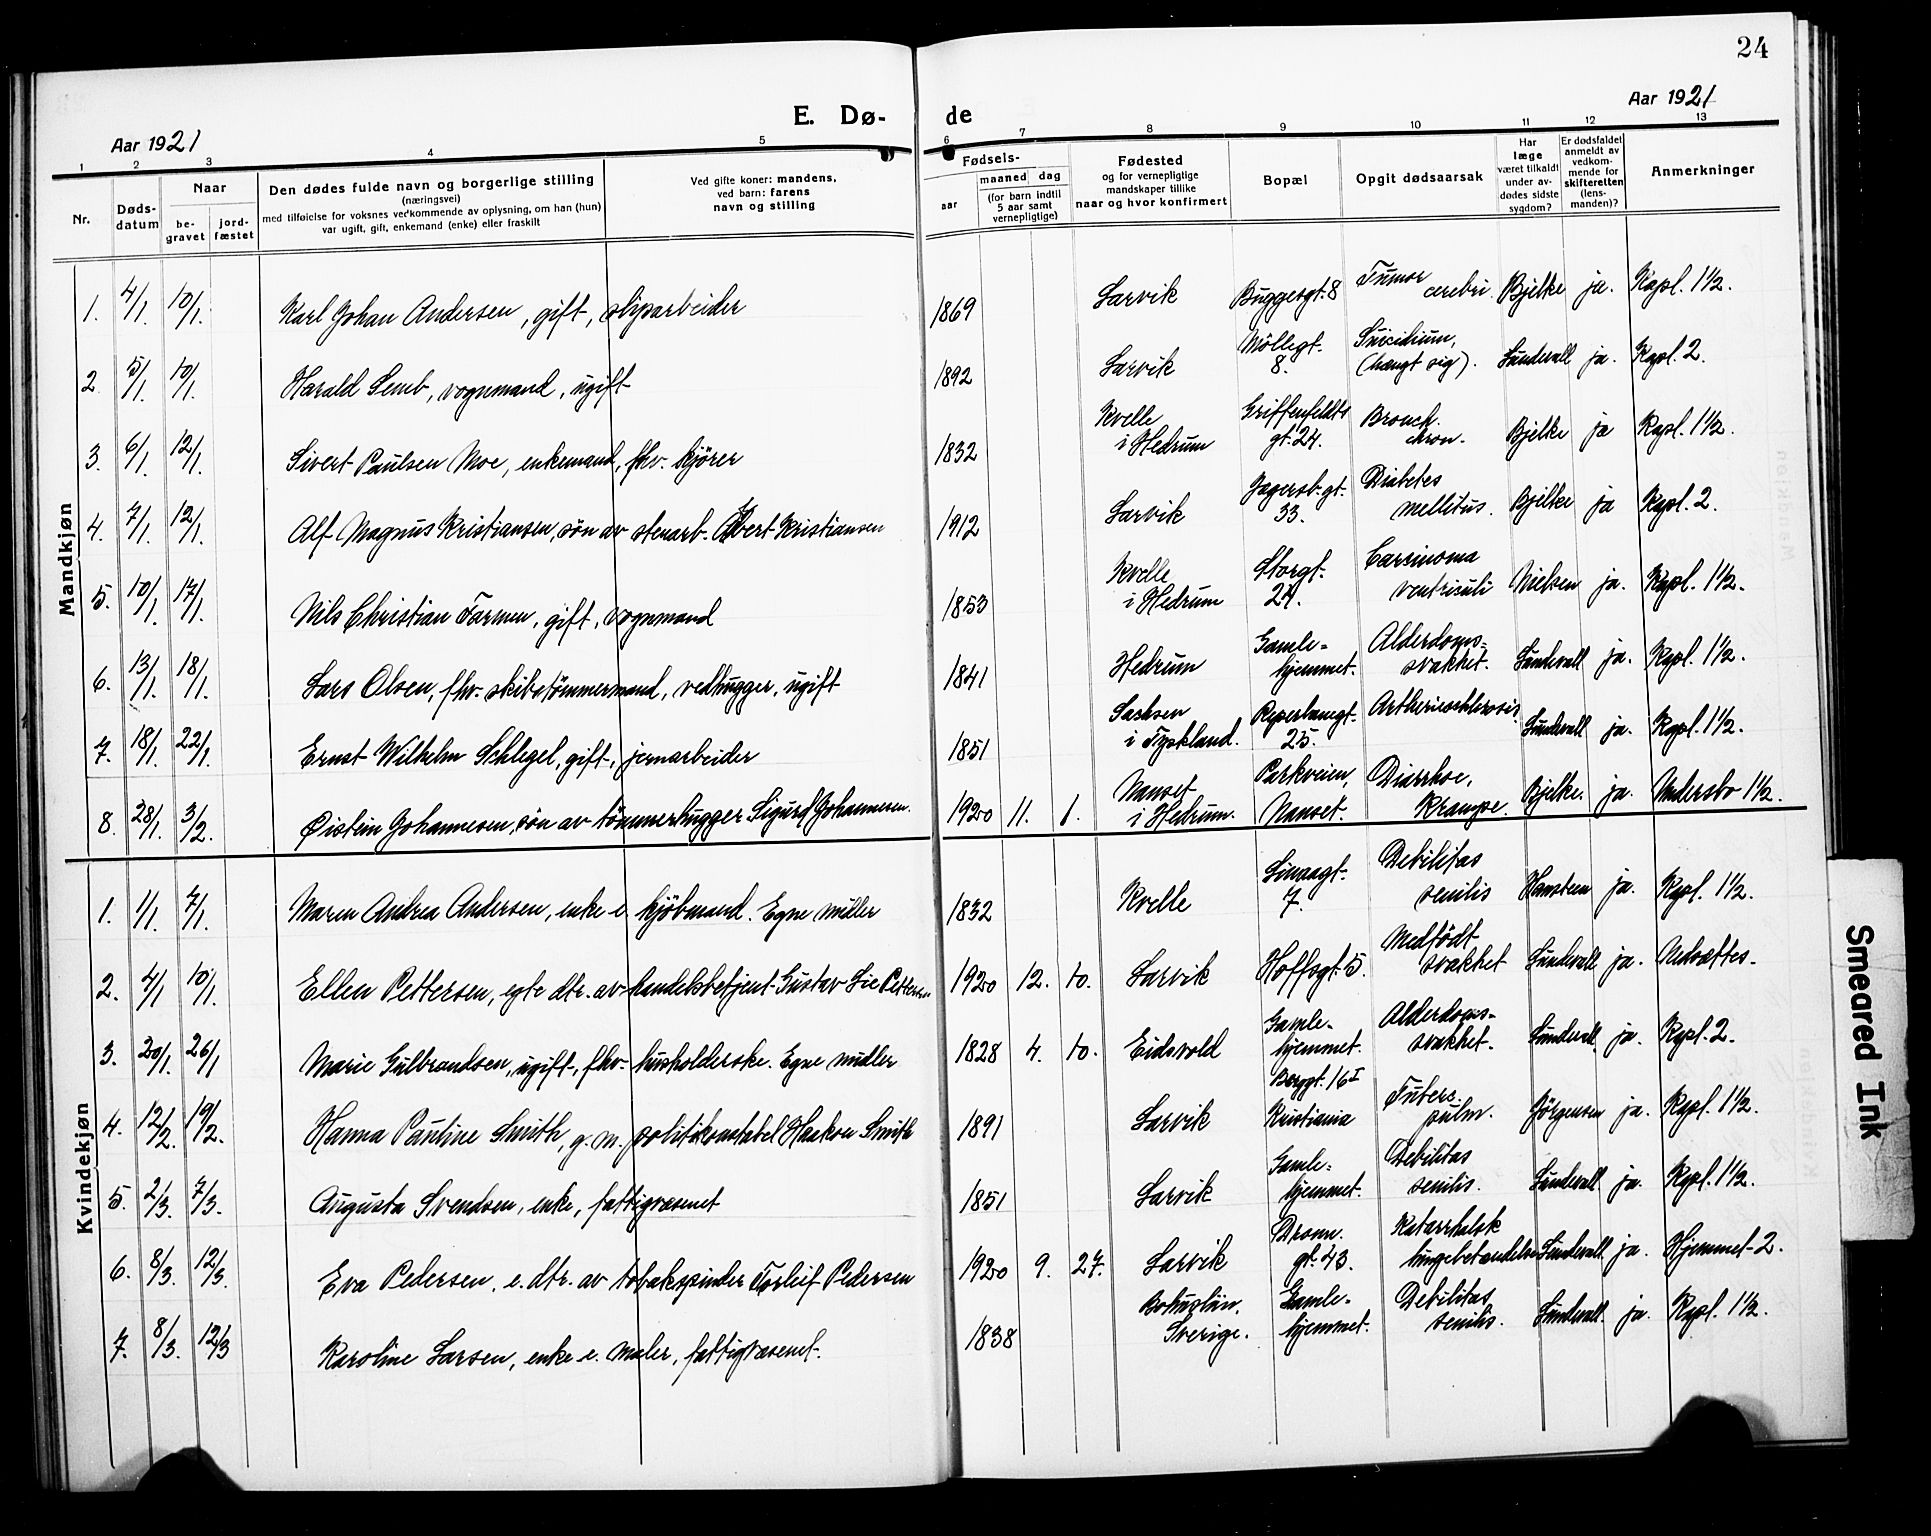 24
E. Dø- de
Aar 1921
Aar 1921
1 2 3 4 5 6 7 8 9 10 11 12 13
Nr.
Døds-
datum
Naar
be-
gravet
jord-
fæstet
Den dødes fulde navn og borgerlige stilling
(næringsvei)
med tilføielse for voksnes vedkommende av oplysning, om han (hun)
var ugift, gift, enkemand (enke) eller fraskilt
Ved gifte koner: mandens,
ved barn: farens
navn og stilling
Fødsels-
aar
maaned dag
(for barn indtil
5 aar samt
vernepligtige)
Fødested
og for vernepligtige
mandskaper tillike
naar og hvor konfirmert
Bopæl
Opgit dødsaarsak
Har
læge
været tilkaldt
under av-
dødes sidste
sygdom?
Er dødsfaldet
anmeldt av
vedkom-
mende for
skifteretten
(lens-
manden)?
Anmerkninger
Mandkjøn
1. 4/1. 10/1. Karl Johan Andersen, gift, sliparbeider 1869 Larvik Buggesgt. 8 Tumor cerebri. Bjelke ja. Kapl. 1 1/2.
2. 5/1. 10/1. Harald Semb, vognmand, ugift 1892 Larvik Möllegt. 8. Suicidium, (hængt sig). Sundevall ja. Kapl. 2.
3. 6/1. 12/1. Sivert Paulsen Moe, enkemand, fhv. kjører 1832 Kvelle i Hedrum Griffenfeldts gt. 24. Bronch. chron. Bjelke ja Kapl. 1 1/2.
4. 7/1. 12/1. Alf Magnus Kristiansen, søn av stenarb. Albert Kristiansen 1912 Larvik Jegersb. gt. 33. Diabetes mellitus. Bjelke ja Kapl. 2.
5. 10/1. 17/1. Nils Christian Farmen, gift, vognmand 1853 Kvelle i Hedrum Storgt. 24. Carsinoma ventriculi Nielsen ja. Kapl. 1 1/2.
6. 13/1. 18/1. Lars Olsen, fhv. skibstømmermand, vedhugger, ugift 1841 Hedrum Gamle- hjemmet. Alderdoms- svakhet. Sundevall ja. Kapl. 1 1/2.
7. 18/1. 22/1. Ernst Wilhelm Schlegel, gift, jernarbeider 1851 Sachsen i Tyskland. Reperbanegt. 25. Artherioschlerosis Sundevall ja. Kapl. 1 1/2.
8. 28/1. 3/2. Øistein Johannesen, søn av tømmerhugger Sigurd Johannesen. 1920 11. 1. Nanset i Hedrum. Parkveien, Nanset. Diarrhoe, Krampe. Bjelke. ja. Undersbo 1 1/2.
Kvindekjøn
1. 1/1. 7/1. Maren Andrea Andersen, enke e kjöbmand. Egne midler 1832 Kvelle Linaagt. 7. Debilitas senilis Hansteen ja. Kapl. 1 1/2.
2. 4/1 10/1. Ellen Pettersen, egte dtr. av handelsbetjent Gustav Lie Pettersen 1920 12. 10. Larvik Hoffsgt. 5. Medfødt svakhet Sundevall ja. Nedsættes.
3. 20/1. 26/1 Marie Gulbrandsen, ugift, fhv. husholderske. Egne midler 1828 4. 10. Eidsvold Gamle- hjemmet. Alderdoms- svakhet. Sundevall. ja. Kapl. 2.
4. 12/2. 19/2. Hanna Pauline Smith, g. m. politikonstabel Haakon Smith 1891 Larvik Berggt. 16 I Kristiania Tuberc. pulm. Jörgensen ja. Kapl. 1 1/2.
5. 2/3. 7/3. Augusta Svendsen, enke, fattigvæsenet 1851 Larvik Gamle- hjemmet. Debilitas senilis. Sundevall ja. Kapl. 1 1/2.
6. 8/3. 12/3. Eva Pedersen, e. dtr. av tobakspinder Torleif Pedersen 1920 9. 27. Larvik Dronn. gt. 43. Katarrhalsk lungebetændelse Sundevall ja. Hjemmet 2.
7. 8/3. 12/3 Karoline Larsen, enke e. maler, fattigvæsenet. 1838 Bohuslän, Sverige. Gamle- hjemmet. Debilitas senilis. Sundevall. ja. Kapl. 1 1/2.
Smeared Ink